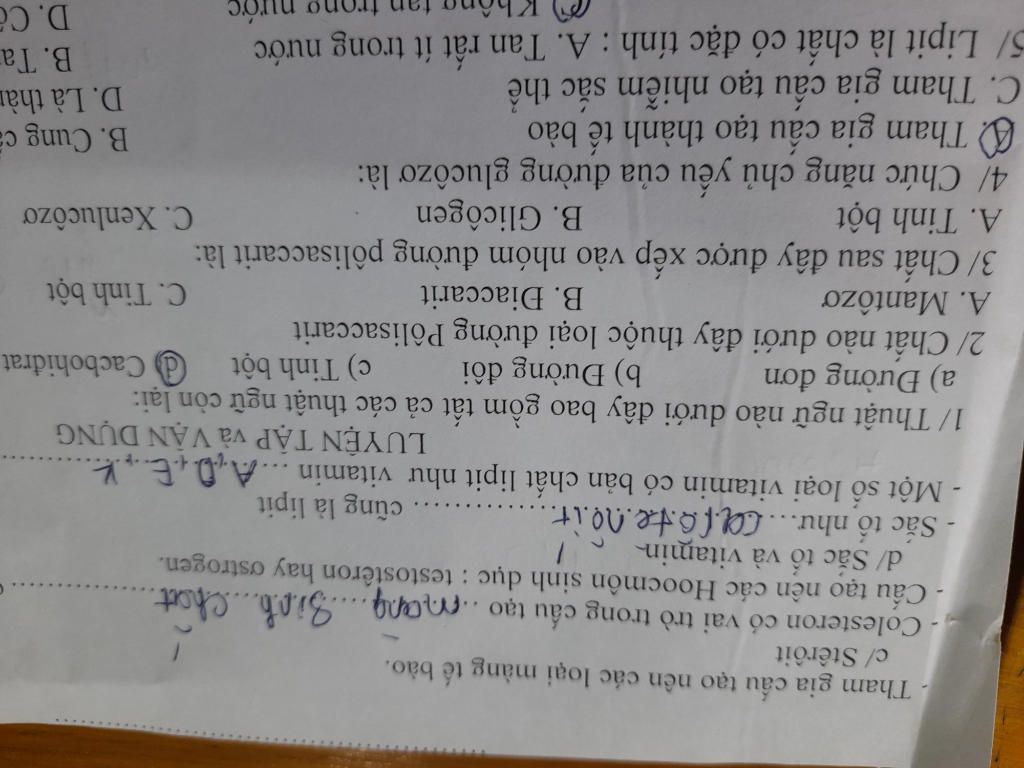 - Tham gia cấu tạo nên các loại màng tế bào.
c/ Stêrôit
- Colesteron có vai trò trong cấu tạo ... màng sinh chất ...
- Cấu tạo nên các Hoocmôn sinh dục : testostêrôn hay ostrogen.
d/ Sắc tố và vitamin
- Sắc tố như.... carôtenôit ............... cũng là lipit
- Một số loại vitamin có bản chất lipit như vitamin ... A, D, E, K ...
LUYỆN TẬP và VẬN DỤNG
1/ Thuật ngữ nào dưới đây bao gồm tất cả các thuật ngữ còn lại:
a) Đường đơn b) Đường đôi c) Tinh bột d) Cacbohiđrat
2/ Chất nào dưới đây thuộc loại đường Pôlisaccarit
A. Mantôzơ B. Điaccarit C. Tinh bột
3/ Chất sau đây được xếp vào nhóm đường pôlisaccarit là:
A. Tinh bột B. Glicôgen C. Xenlucôzơ
4/ Chức năng chủ yếu của đường glucôzơ là:
A. Tham gia cấu tạo thành tế bào B. Cung
C. Tham gia cấu tạo nhiễm sắc thể D. Là
5/ Lipit là chất có đặc tính : A. Tan rất ít trong nước B.
C. Không tan trong nước D.